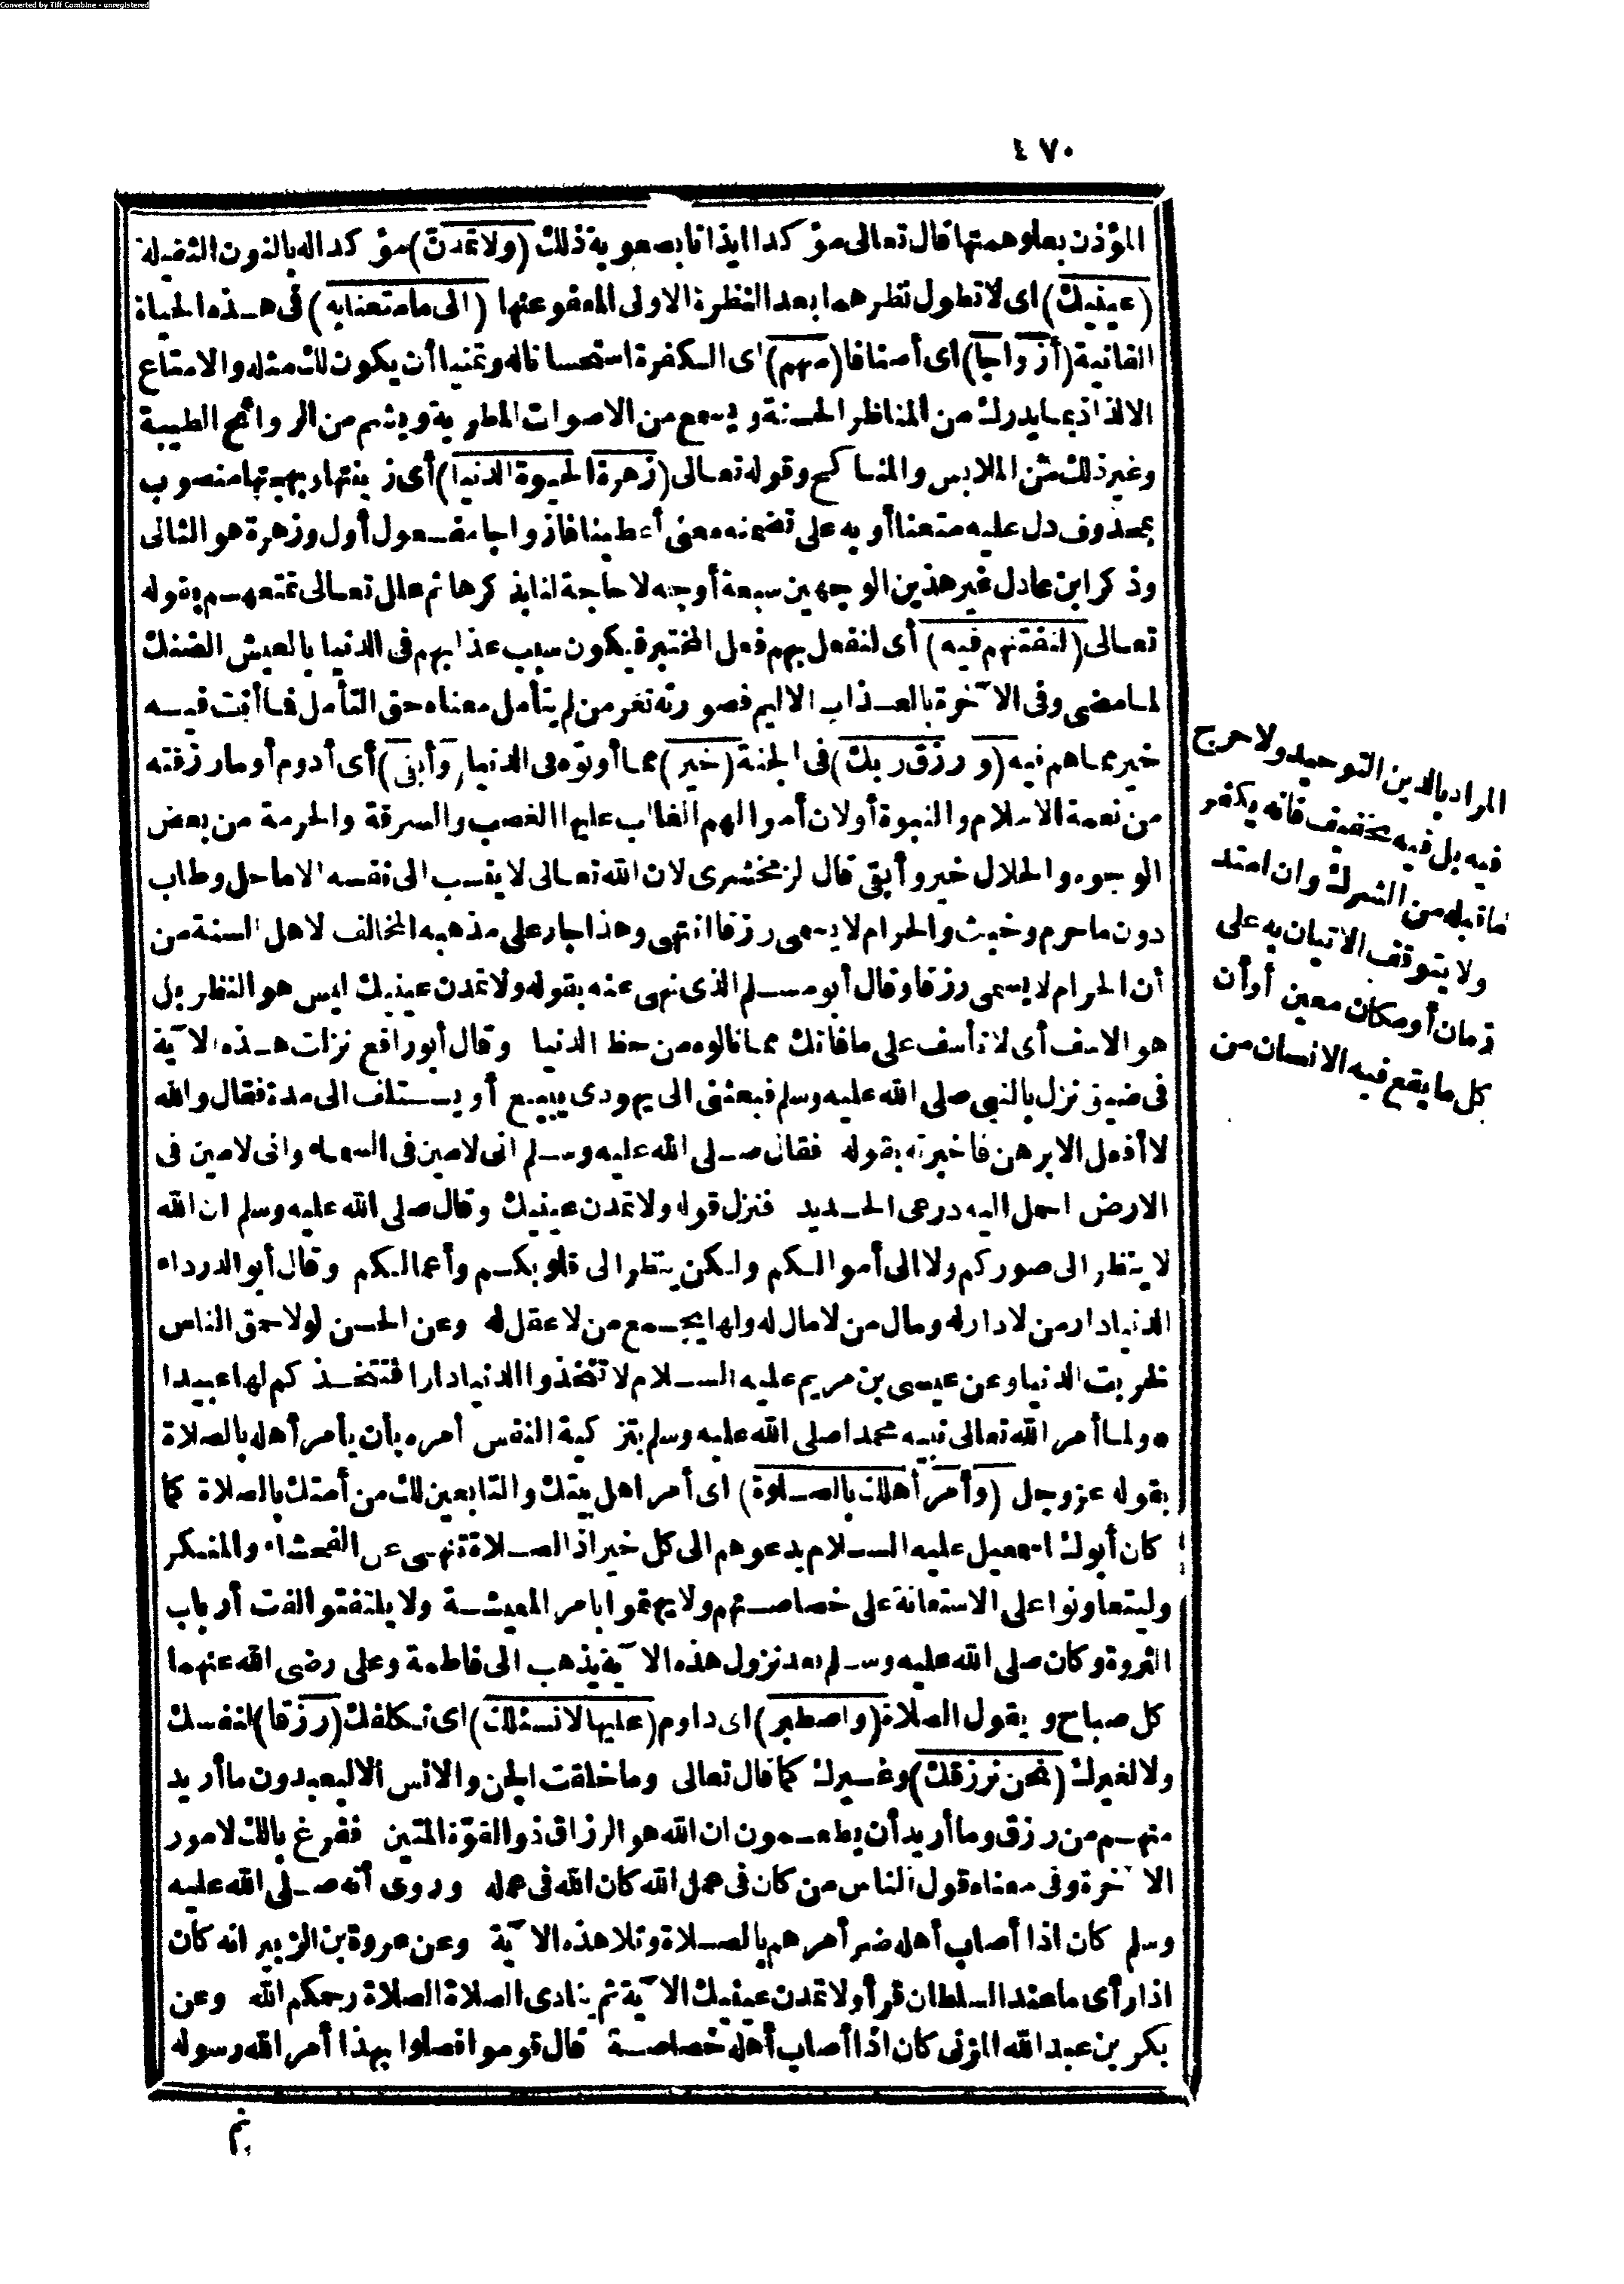 Converted by Tiff Combine - unregistered
٤٧٠
المؤذن بعلو همتها قال تعالى مؤكدا ايذانا بصعوبة ذلك (ولا تمدنّ) مؤكدا له بالنون الثقيلة
(عينيك) اى لا تطول نظرهما بعد النظرة الاولى المعفو عنها (الى ما متعنا به) فى هذه الحياة
الفانية (أزواجا) أى أصنافا (منهم) اى الكفرة استحسانا له وتمنيا أن يكون لك مثله والامتاع
الالذاذ بما يدرك من المناظر الحسنة ويسمع من الاصوات المطربة ويشم من الروائح الطيبة
وغير ذلك من الملابس والمناكح وقوله تعالى (زهرة الحيوة الدنيا) أى زينتها وبهجتها منصوب
بمحذوف دل عليه متعنا أو به على تضمنه معنى أعطينا فازواجا مفعول أول وزهرة هو الثانى
وذكر ابن عادل غير هذين الوجهين سبعة أوجه لا حاجة لنا بذكرها ثم علل تعالى تمتعهم بقوله
تعالى (لنفتنهم فيه) أى لنفعل بهم فعل المختبر فيكون سبب عذابهم فى الدنيا بالعيش الضنك
لما مضى وفى الآخرة بالعذاب الاليم فصورته تغر من لم يتأمل معناه حق التأمل فما أنت فيه
خير مما هم فيه (ورزق ربك) فى الجنة (خير) مما أوتوه فى الدنيا (وأبقى) أى أدوم أو ما رزقته
من نعمة الاسلام والنبوة أو لان أموالهم الغالب عليها الغصب والسرقة والحرمة من بعض
الوجوه والحلال خير وأبقى قال لزمخشرى لان الله تعالى لا ينسب الى نفسه الا ما حل وطاب
دون ما حرم وخبث والحرام لا يسمى رزقا انتهى وهذا جار على مذهبه المخالف لاهل السنة من
أن الحرام لا يسمى رزقا وقال أبو مسلم الذى نهى عنه بقوله ولا تمدن عينيك ليس هو النظر بل
هو الاسف أى لا تأسف على ما فاتك مما نالوه من حظ الدنيا وقال أبو رافع نزلت هذه الآية
فى ضيف نزل بالنبي صلى الله عليه وسلم فبعثنى الى يهودى يبيع أو يستلف الى مدة فقال والله
لا أفعل الا برهن فاخبرته بقوله فقال صلى الله عليه وسلم انى لامين فى السماء وانى لامين فى
الارض احمل اليه درعى الحديد فنزل قوله ولا تمدن عينيك وقال صلى الله عليه وسلم ان الله
لا ينظر الى صوركم ولا الى أموالكم ولكن ينظر الى قلوبكم وأعمالكم وقال أبو الدرداء
الدنيا دار من لا دار له ومال من لا مال له ولها يجمع من لا عقل له وعن الحسن لولا حمق الناس
لخربت الدنيا وعن عيسى بن مريم عليه السلام لا تتخذوا الدنيا دارا فتتخذكم لها عبيدا
* ولما أمر الله تعالى نبيه محمدا صلى الله عليه وسلم بتزكية النفس أمره بأن يأمر أهله بالصلاة
بقوله عز وجل (وأمر أهلك بالصلوة) اى أمر اهل بيتك والتابعين لك من أمتك بالصلاة كما
كان أبوك اسمعيل عليه السلام يدعوهم الى كل خير اذ الصلاة تنهى عن الفحشاء والمنكر
وليتعاونوا على الاستعانة على خصاصتهم ولا يهتموا بامر المعيشة ولا يلتفتوا لفت أرباب
الثروة وكان صلى الله عليه وسلم بعد نزول هذه الآية يذهب الى فاطمة وعلى رضى الله عنهما
كل صباح ويقول الصلاة (واصطبر) اى داوم (عليها لا نسئلك) اى نكلفك (رزقا) لنفسك
ولا لغيرك (نحن نرزقك) وغيرك كما قال تعالى وما خلقت الجن والانس الا ليعبدون ما أريد
منهم من رزق وما أريد أن يطعمون ان الله هو الرزاق ذو القوّة المتين ففرغ بالك لامور
الآخرة وفى معناه قول الناس من كان فى عمل الله كان الله فى عمله وروى أنه صلى الله عليه
وسلم كان اذا أصاب أهله ضر أمرهم بالصلاة وتلا هذه الآية وعن عروة بن الزبير انه كان
اذا رأى ما عند السلطان قرأ ولا تمدن عينيك الآية ثم ينادى الصلاة الصلاة رحمكم الله وعن
بكر بن عبد الله المزنى كان اذا أصاب أهله خصاصة قال قوموا فصلوا بهذا أمر الله رسوله
المراد بالدين التوحيد ولا حرج
فيه بل فيه تخفيف فانه يكفر
ما قبله من الشرك وان امتد
ولا يتوقف الاتيان به على
زمان أو مكان معين أو أن
كل ما يقع فيه الانسان من
ثم